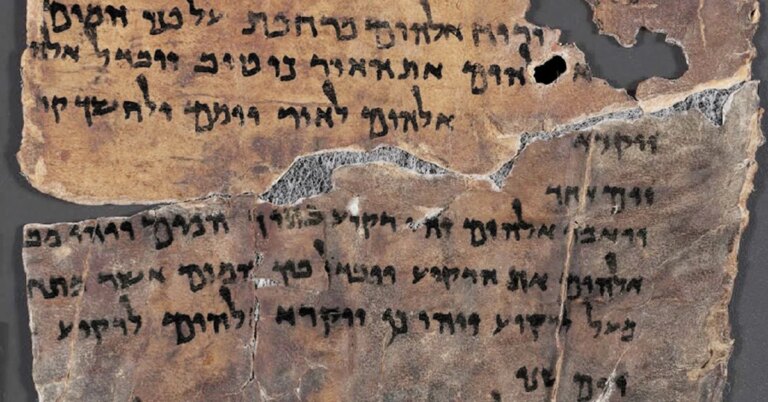 ורוח אלהים מרחפת על פני המים
אלהים את האור כי טוב ויבדל אלה
ויקרא
אלהים לאור יומם ולחשך קר
יום אחד
ויאמר אלהים יהי רקיע בתוך המים ויהי מב
אלהים את הרקיע ויבדל בין המים אשר מתח
מעל לרקיע ויהי כן ויקרא אלהים לרקיע
יום שני